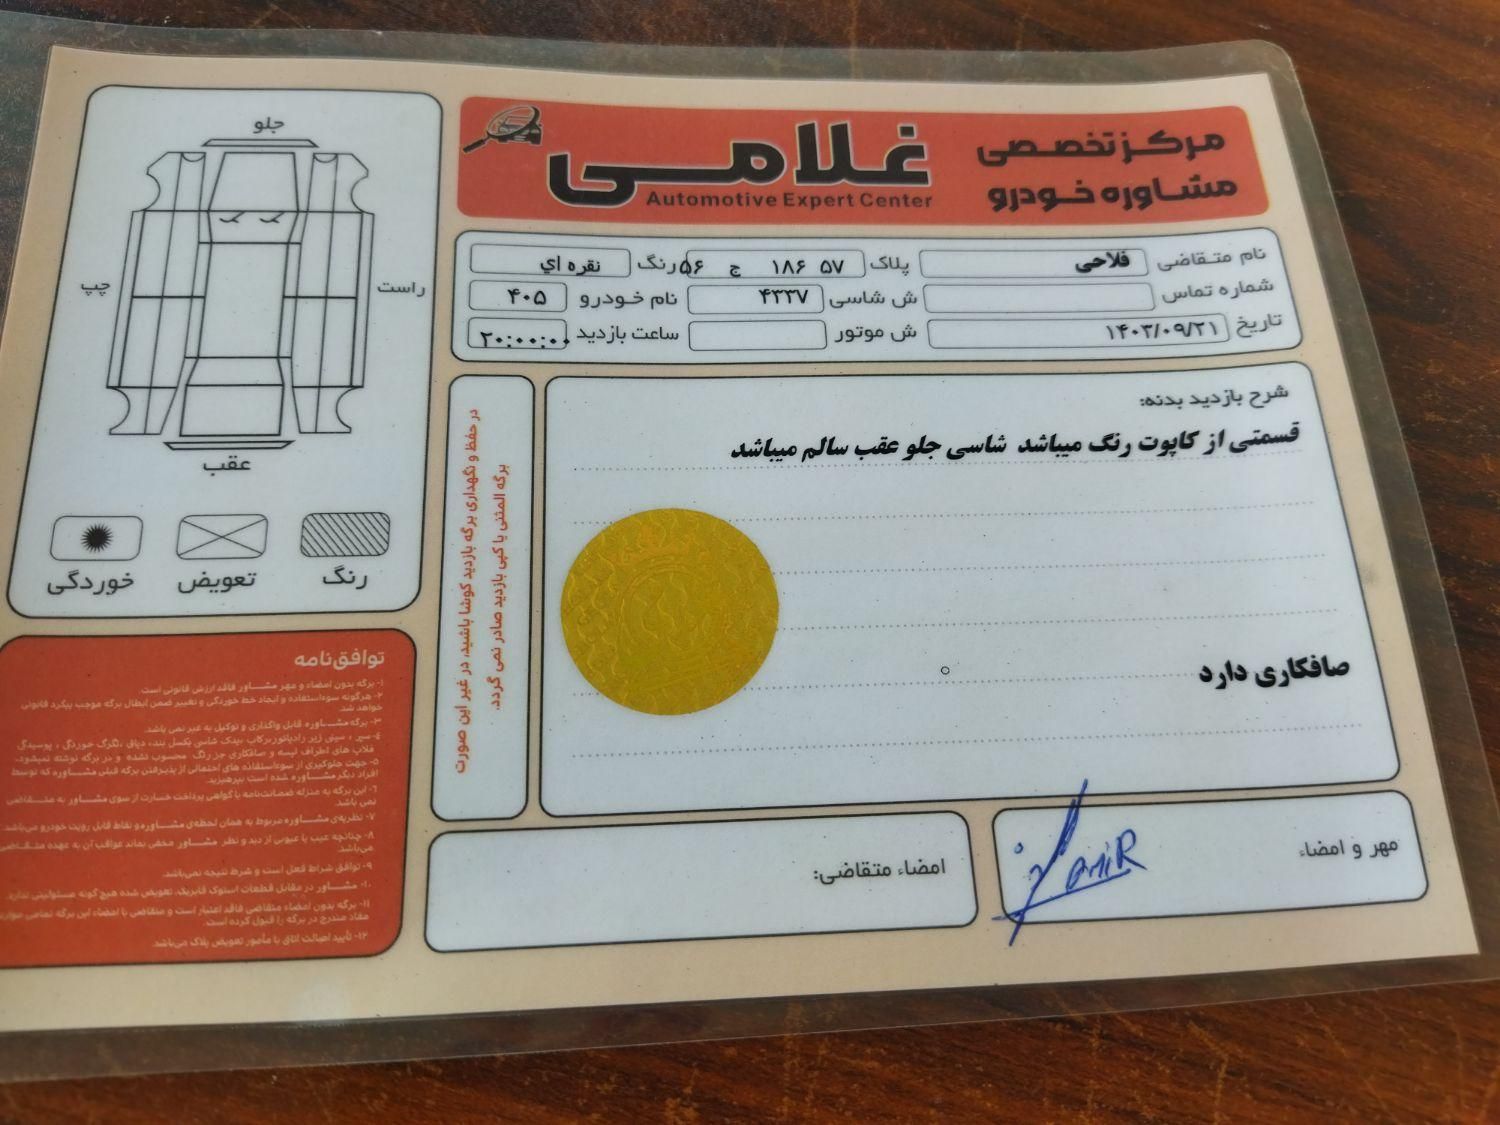 مرکز تخصصی
مشاوره خودرو
غلامی
Automotive Expert Center
نام متقاضی فلاحی پلاک ۵۷ ۱۸۶ ج ۵۶ رنگ نقره اي
شماره تماس ش شاسی ۴۳۳۷ نام خودرو ۴۰۵
تاریخ ۱۴۰۳/۰۹/۲۱ ش موتور ساعت بازدید ۲۰:۰۰:۰۰
شرح بازدید بدنه:
قسمتی از کاپوت رنگ میباشد شاسی جلو عقب سالم میباشد
صافکاری دارد
مهر و امضاء
AmiR
امضاء متقاضی:
در حفظ و نگهداری برگه بازدید کوشا باشید، در غیر این صورت
برگه المثنی یا کپی بازدید صادر نمی گردد.
جلو
راست
چپ
عقب
رنگ
تعویض
خوردگی
توافق‌نامه
۱- برگه بدون امضاء و مهر مشاور فاقد ارزش قانونی است.
۲- هرگونه سوءاستفاده و ایجاد خط خوردگی و تغییر ضمن ابطال برگه موجب پیگرد قانونی
خواهد شد.
۳- برگه مشاوره قابل واگذاری و توکیل به غیر نمی باشد.
۴- سپر ، سینی زیر رادیاتور،رکاب ،یدک شاسی بکسل بند، دیاق ،تگرگ خوردگی ، پوسیدگی
قلاب های اطراف لیسه و صافکاری جز رنگ محسوب نشده و در برگه نوشته نمیشود.
۵- جهت جلوگیری از سوءاستفاده های احتمالی از پذیرفتن برگه قبلی مشاوره که توسط
افراد دیگر مشاوره شده است بپرهیزید.
۶- این برگه به منزله ضمانت‌نامه یا گواهی پرداخت خسارت از سوی مشاور به متقاضی
نمی باشد.
۷- نظریه‌ی مشاوره مربوط به همان لحظه‌ی مشاوره و نقاط قابل رویت خودرو می‌باشد.
۸- چنانچه عیب یا عیوبی از دید و نظر مشاور مخفی بماند عواقب آن به عهده متقاضی
می‌باشد.
۹- توافق شرط فعل است و شرط نتیجه نمی‌باشد.
۱۰- مشاور در مقابل قطعات استوک فابریک، تعویض شده هیچ گونه مسئولیتی ندارد.
۱۱- برگه بدون امضاء متقاضی فاقد اعتبار است و متقاضی با امضاء این برگه تمامی موارد
مفاد مندرج در برگه را قبول کرده است.
۱۲- تأیید اصالت اتاق با مأمور تعویض پلاک می‌باشد.